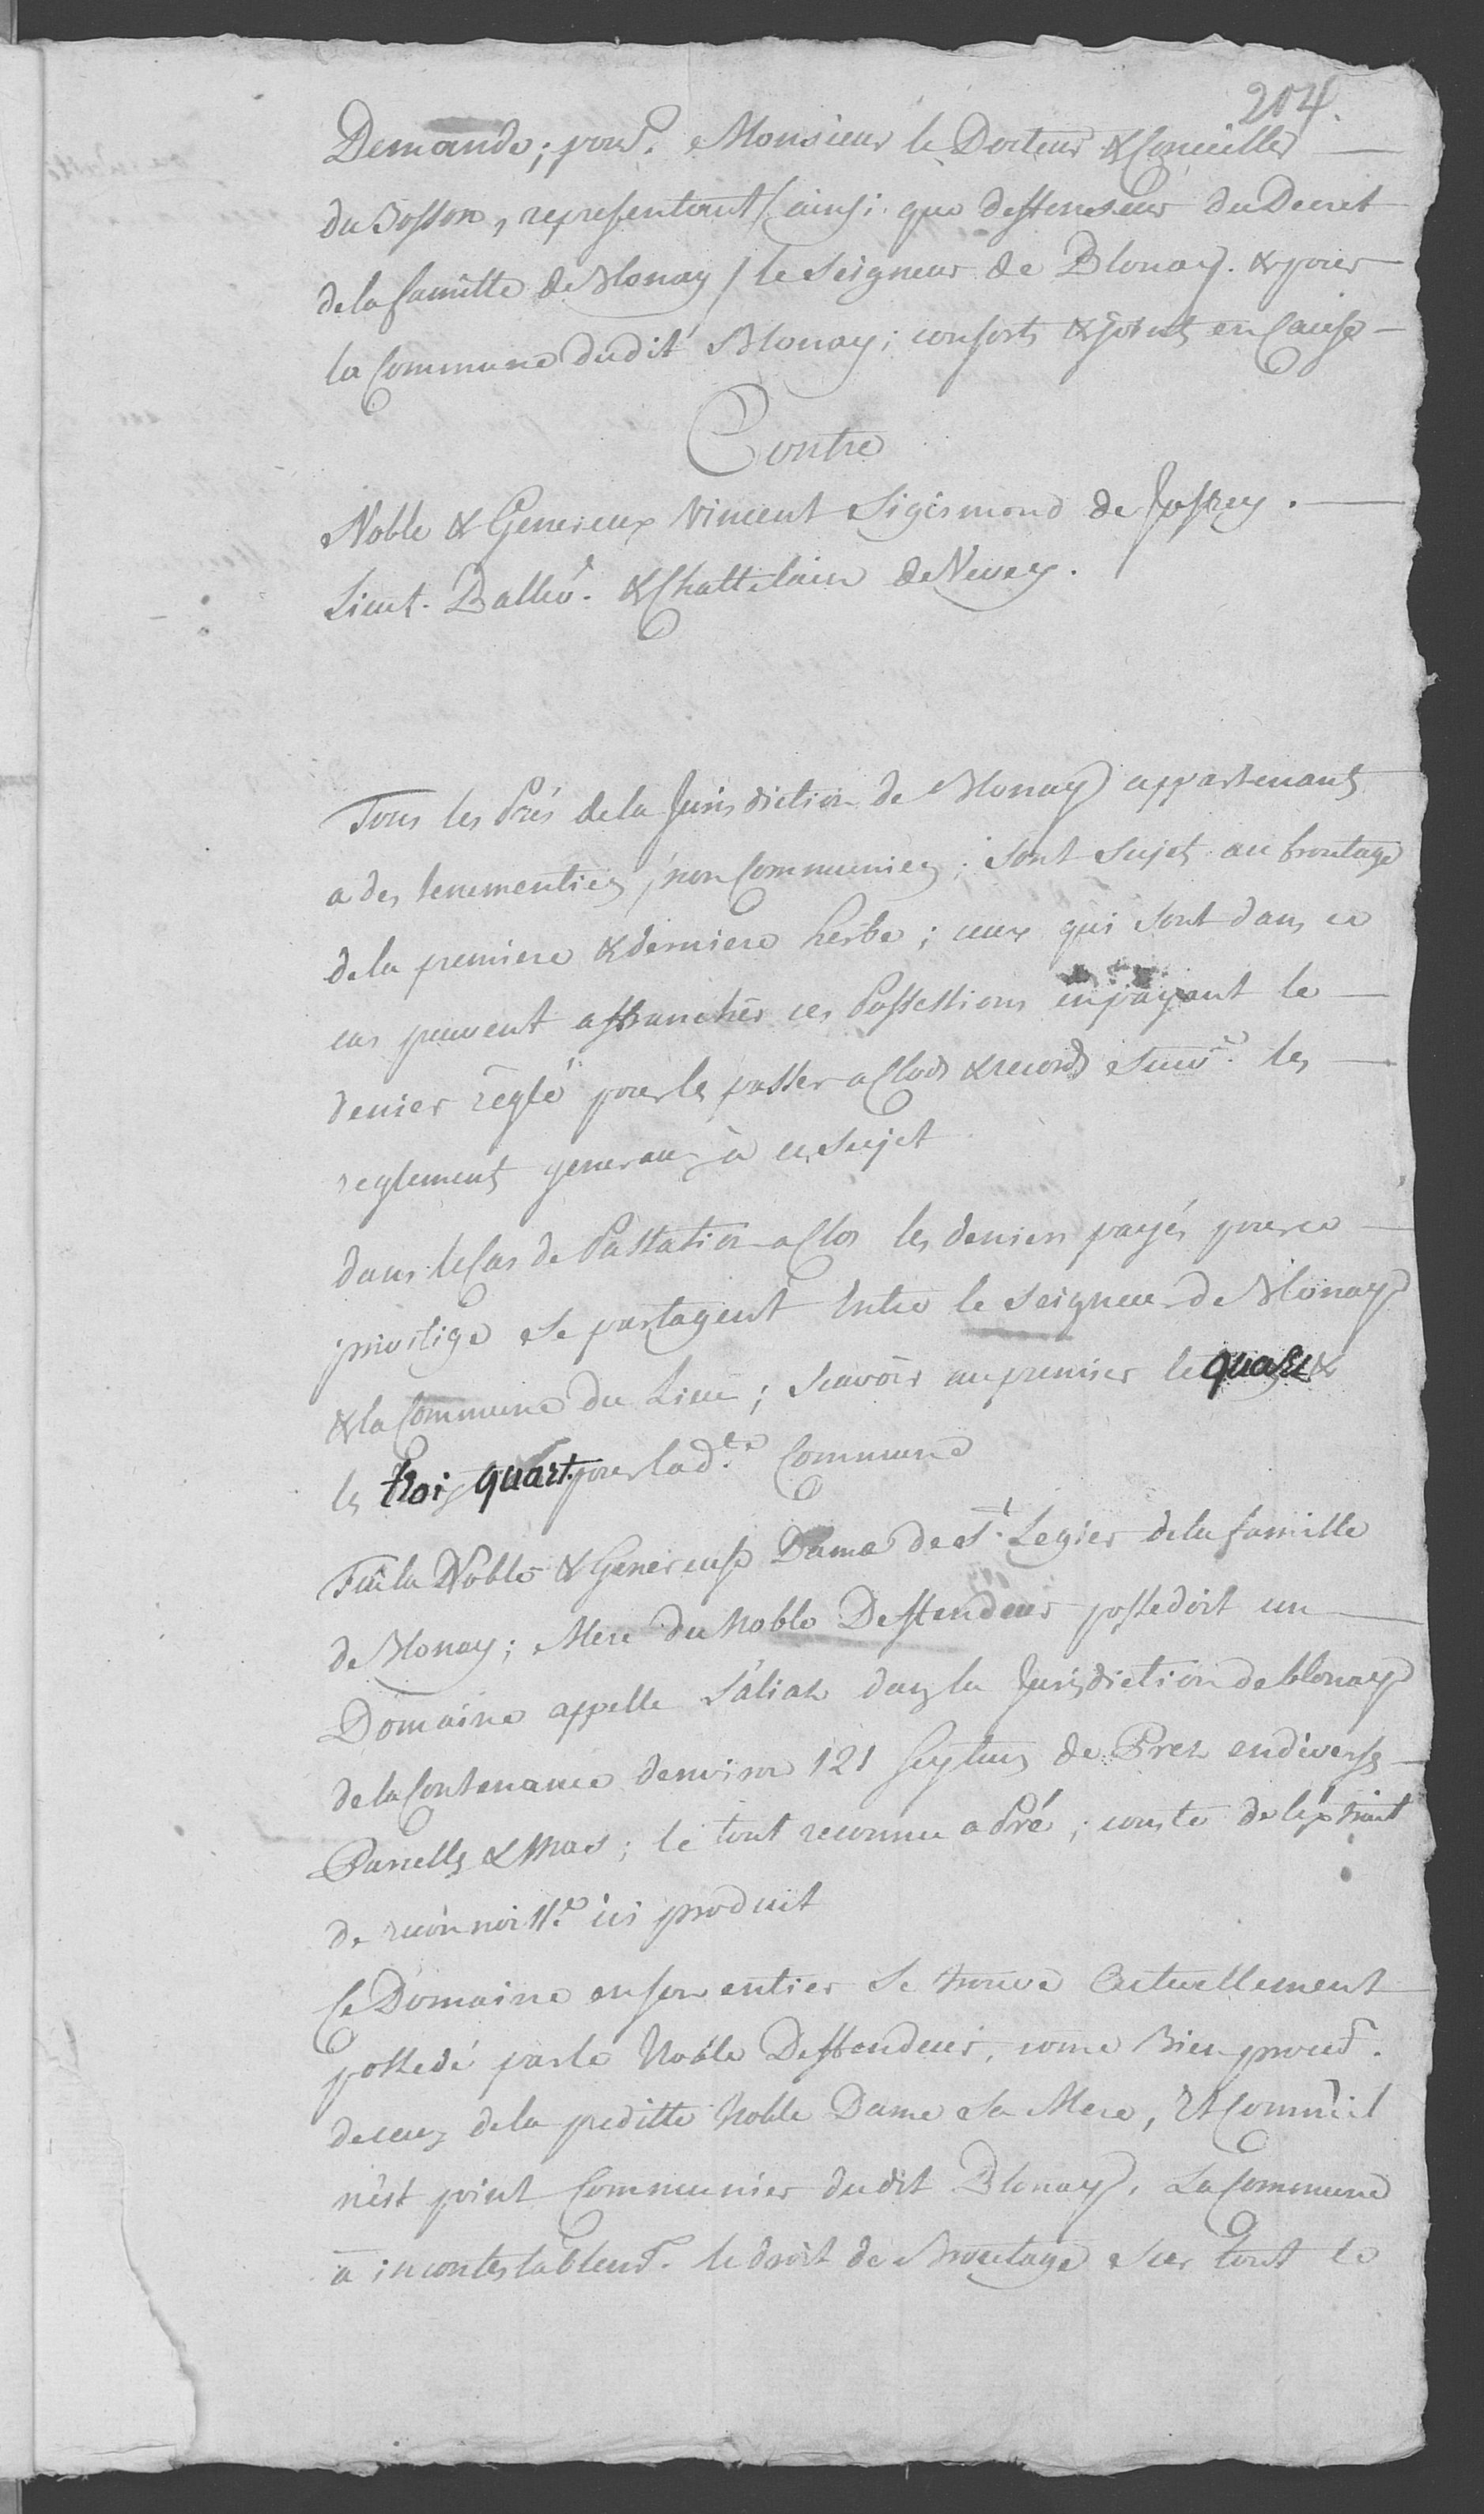 204.
Demande; pour. Monsieur le Docteur & Conseiller
du Bosson, representant / ainsi que deffenseur du Decret
de la famille de Blonay / le Seigneur de Blonay. & pour
la Commune dudit Blonay; consorts & joints en Cause
Contre
Noble & Genereux Vincent Sigismond de Joffrey.
Lieut. Balliv. & Chattelain de Vevey.
Tous les Prés de la Jurisdiction de Blonay appartenants
a des tenementiers, non Communiers; sont sujets au broutage
de la premiere & derniere herbe; ceux qui sont dans ce
cas peuvent affranchir ces Possessions en payant le
denier reglé pour les passer a Clos & records suiv.t les
reglements generaux à ce sujet
dans le Cas de Passation a Clos les deniers payés pour ce
privilige se partagent entre le Seigneur de Blonay
& la Commune du Lieu; scavoir au premier le quart &
les trois quart pour lad.te Commune
Fuë la Noble & Genereuse Dame de St. Legier de la famille
de Blonay; Mere du Noble Deffendeur possedoit un
Domaine appelle Saliaz dans la Jurisdiction de blonay
de la Contenance d'environ 121 seyteurs de Prez en diverses
Parcelles & Mas; le tout reconnu a Pré; conste de l'extrait
de reconnoiss.e ici produit
Ce Domaine en son entier se trouve Actuellement
possedé par le Noble Deffendeur, come Bien proced.
de ceux de la preditte Noble Dame sa Mere, Et Comm'il
n'est point Communier dudit Blonay, La Commune
a incontestablem.t le droit de Broutage sur tout le